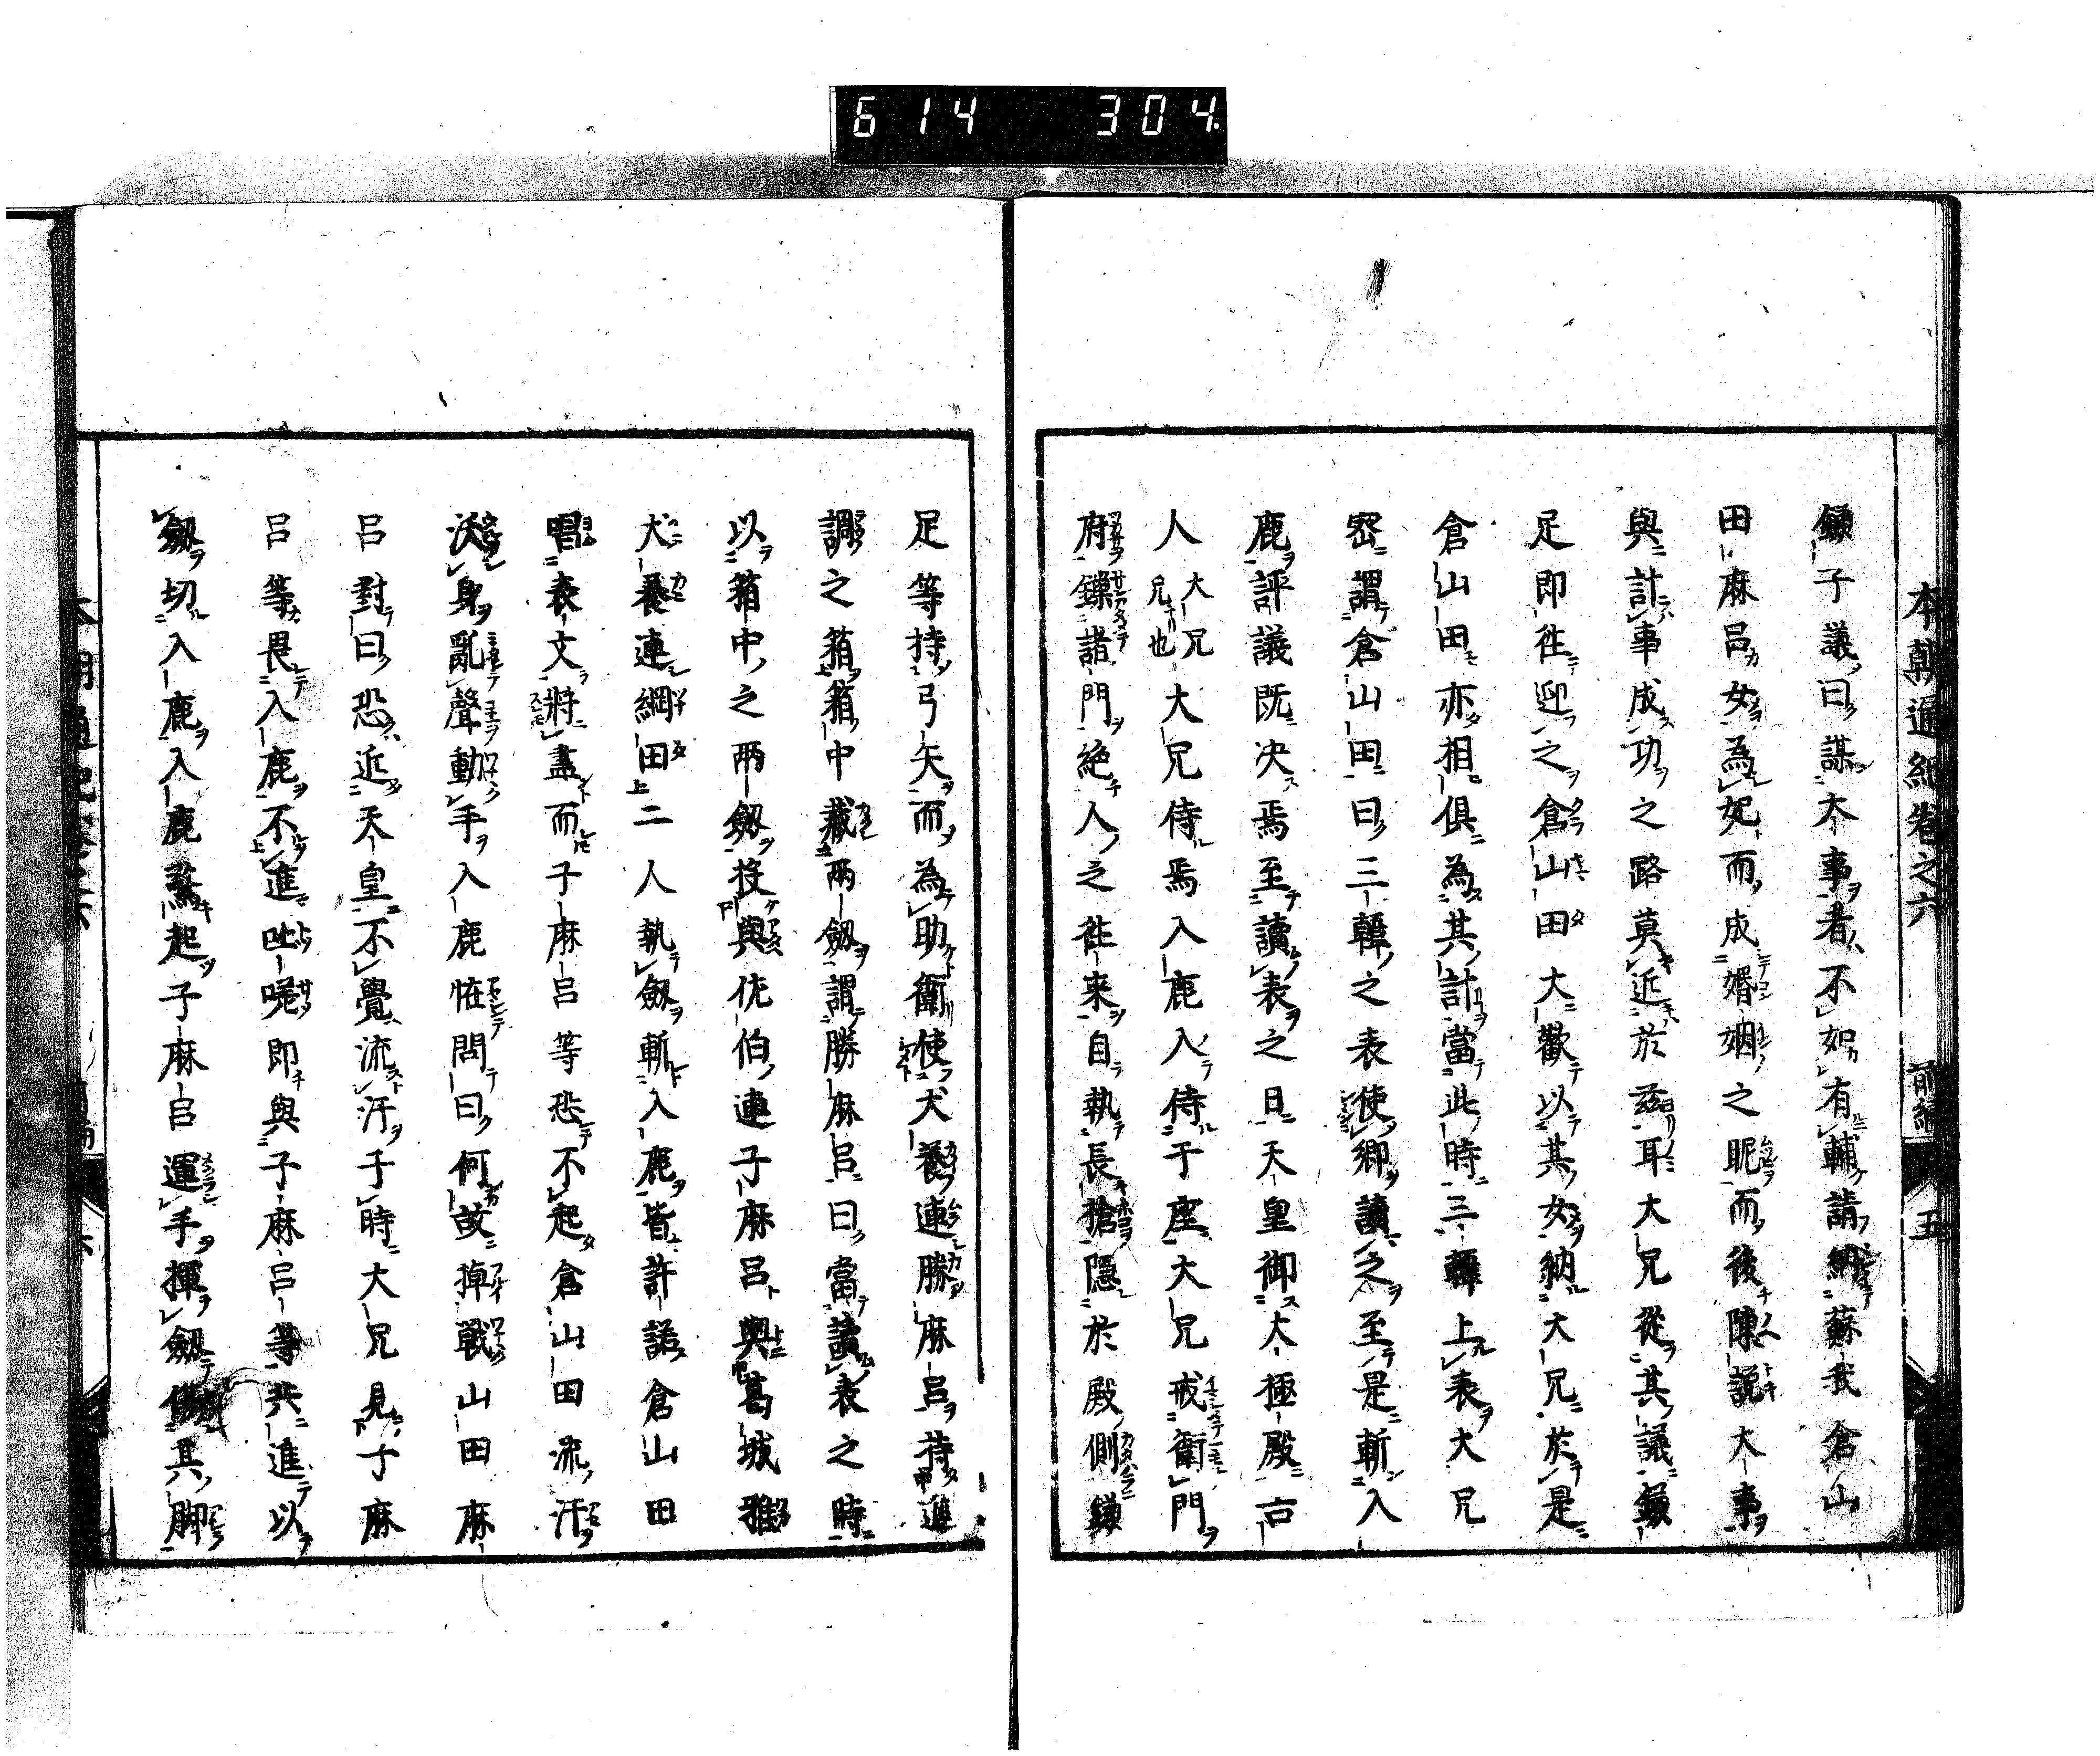 6 14 304.
本朝通紀卷之六 前編 五
鎌子議曰謀大事者不如有輔請納蘇我倉山
田麻呂女為妃而成婚姻之昵而後陳說大事
與計事成功之路莫近於茲耳大兄從其議鎌
足即往迎之倉山田大歡以其女納大兄於是
倉山田亦相俱為其計當此時三韓上表大兄
密謂倉山田曰三韓之表使卿讀之至是斬入
鹿評議既决焉至讀表之日天皇御大極殿古
人大兄兄也大兄侍焉入鹿入侍于座大兄戒衛門
府鏁諸門絶人之往来自執長槍隠於殿側鎌
足等持弓矢而為助衛使犬養連勝麻呂持進
調之箱箱中藏兩劔謂勝麻呂曰當讀表之時
以箱中之兩劔投與佐伯連子麻呂與葛城雅
犬養連綱田二人執劔斬入鹿皆許諾倉山田
唱表文將盡而子麻呂等恐不起倉山田流汗
浃身亂聲動手入鹿恠問曰何故掉戰山田麻
呂對曰恐近天皇不覺流汗于時大兄見子麻
呂等畏入鹿不進咄嗟即與子麻呂等共進以
劔切入鹿入鹿驚起子麻呂運手揮劔傷其脚